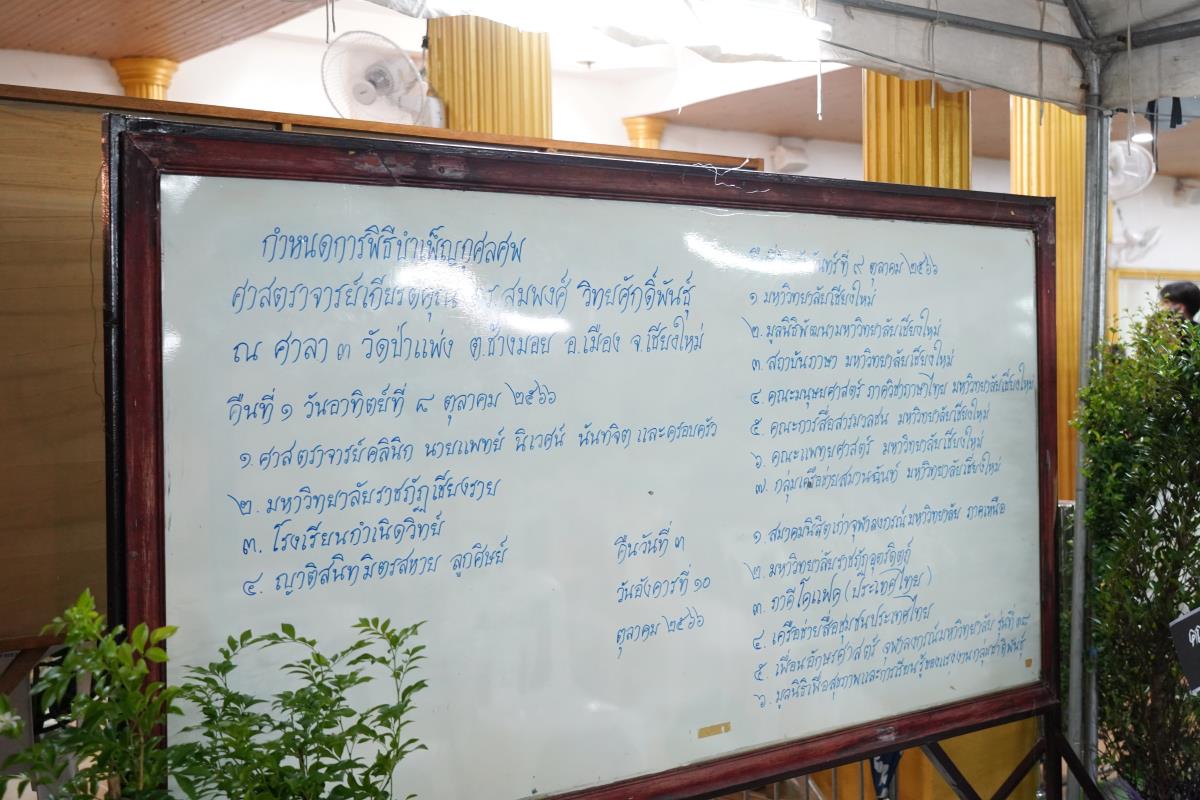 กำหนดการพิธีบำเพ็ญกุศลศพ
ศาสตราจารย์เกียรติคุณ สมพงศ์ วิทยศักดิ์พันธุ์
ณ ศาลา ๓ วัดป่าแพ่ง ต.ช้างมอย อ.เมือง จ.เชียงใหม่
คืนที่ ๑ วันอาทิตย์ที่ ๘ ตุลาคม ๒๕๖๖
๑. ศาสตราจารย์คลินิก นายแพทย์ นิเวศน์ นันทจิต และครอบครัว
๒. มหาวิทยาลัยราชภัฏเชียงราย
๓. โรงเรียนกำเนิดวิทย์
๔. ญาติสนิทมิตรสหาย ลูกศิษย์
ที่ ๙ ตุลาคม ๒๕๖๖
๑ มหาวิทยาลัยเชียงใหม่
๒. มูลนิธิพัฒนามหาวิทยาลัยเชียงใหม่
๓. สถาบันภาษา มหาวิทยาลัยเชียงใหม่
๔. คณะมนุษยศาสตร์ ภาควิชาภาษาไทย มหาวิทยาลัยเชียงใหม่
๕. คณะการสื่อสารมวลชน มหาวิทยาลัยเชียงใหม่
๖. คณะแพทยศาสตร์ มหาวิทยาลัยเชียงใหม่
๗. กลุ่มเครือข่ายสมานฉันท์ มหาวิทยาลัยเชียงใหม่
คืนวันที่ ๓
วันอังคารที่ ๑๐
ตุลาคม ๒๕๖๖
๑. สมาคมนิสิตเก่าจุฬาลงกรณ์มหาวิทยาลัย ภาคเหนือ
๒. มหาวิทยาลัยราชภัฏอุตรดิตถ์
๓. ภาคีโคแฟค (ประเทศไทย)
๔. เครือข่ายสื่อชุมชนประเทศไทย
๕. เพื่อนอักษรศาสตร์ จุฬาลงกรณ์มหาวิทยาลัย รุ่นที่ ๓๘
๖. มูลนิธิเพื่อสุขภาพและการเรียนรู้ของแรงงานกลุ่มชาติพันธุ์